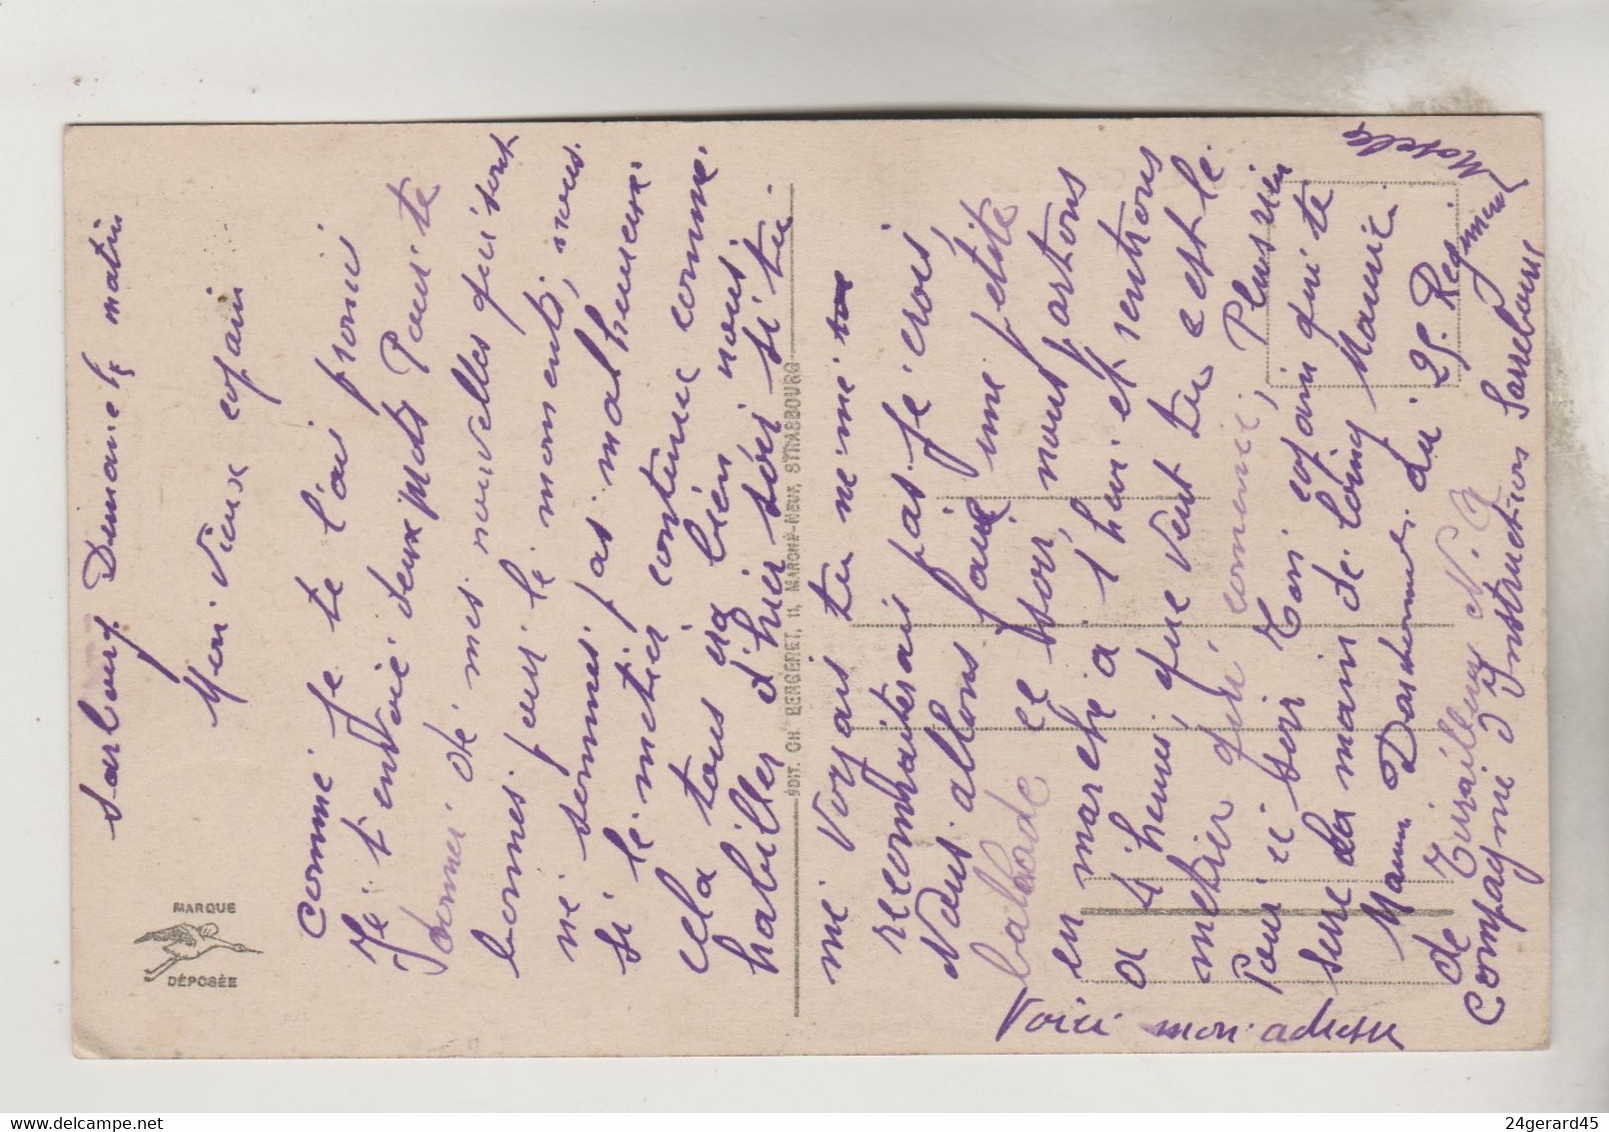 Sarbourg Dimanche matin
Mon Vieux copain
Comme je te l'ai promi
Je t'envoie deux mots Pour te
donner de mes nouvelles qui sont
bonnes pour le moment, nous
ne sommes pas malheureux
si le métier continue comme
cela tous ira bien nous
habiller d'hier soir si tu
me voyais tu ne me
reconnaiterais pas je crois,
Nous allons faire une petite
balade ce soir, nous partons
en marche a 1 heure et rentrons
a 4 heures que veut tu c est le
metier qui comence, Plus rien
Pour ce soir Ton copain qui te
serre la main de loing Maurice
Voici mon adresse
Maurice du 25. Regiment
de Tirailleurs
Compagnie d'Instruction Sarrebourg
Moselle
MARQUE
DÉPOSÉE
ÉDIT. CH BERGERET, 11, MARCHÉ-NEUF, STRASBOURG
24gerard45